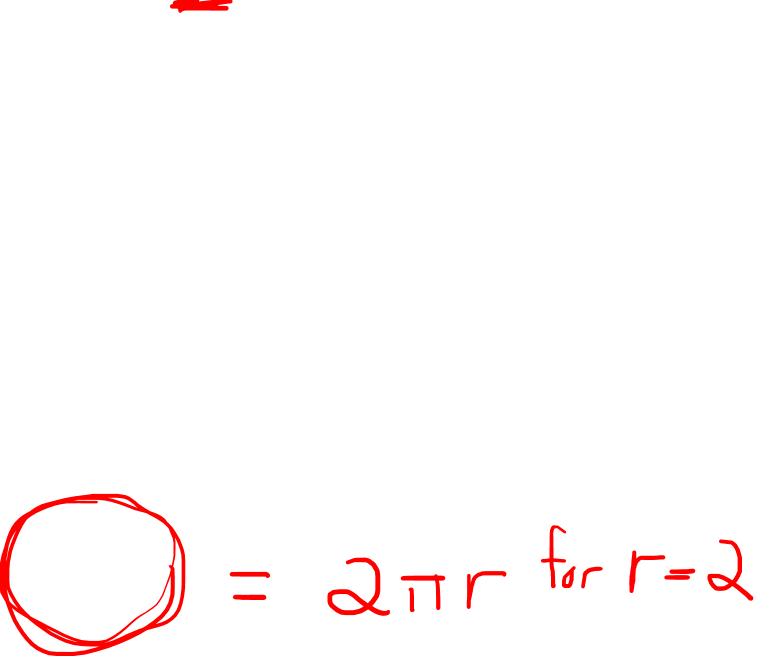 = 2πr for r=2